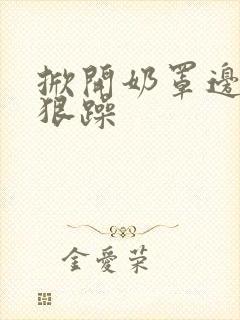 掀開奶罩邊
狠躁
金愛荣